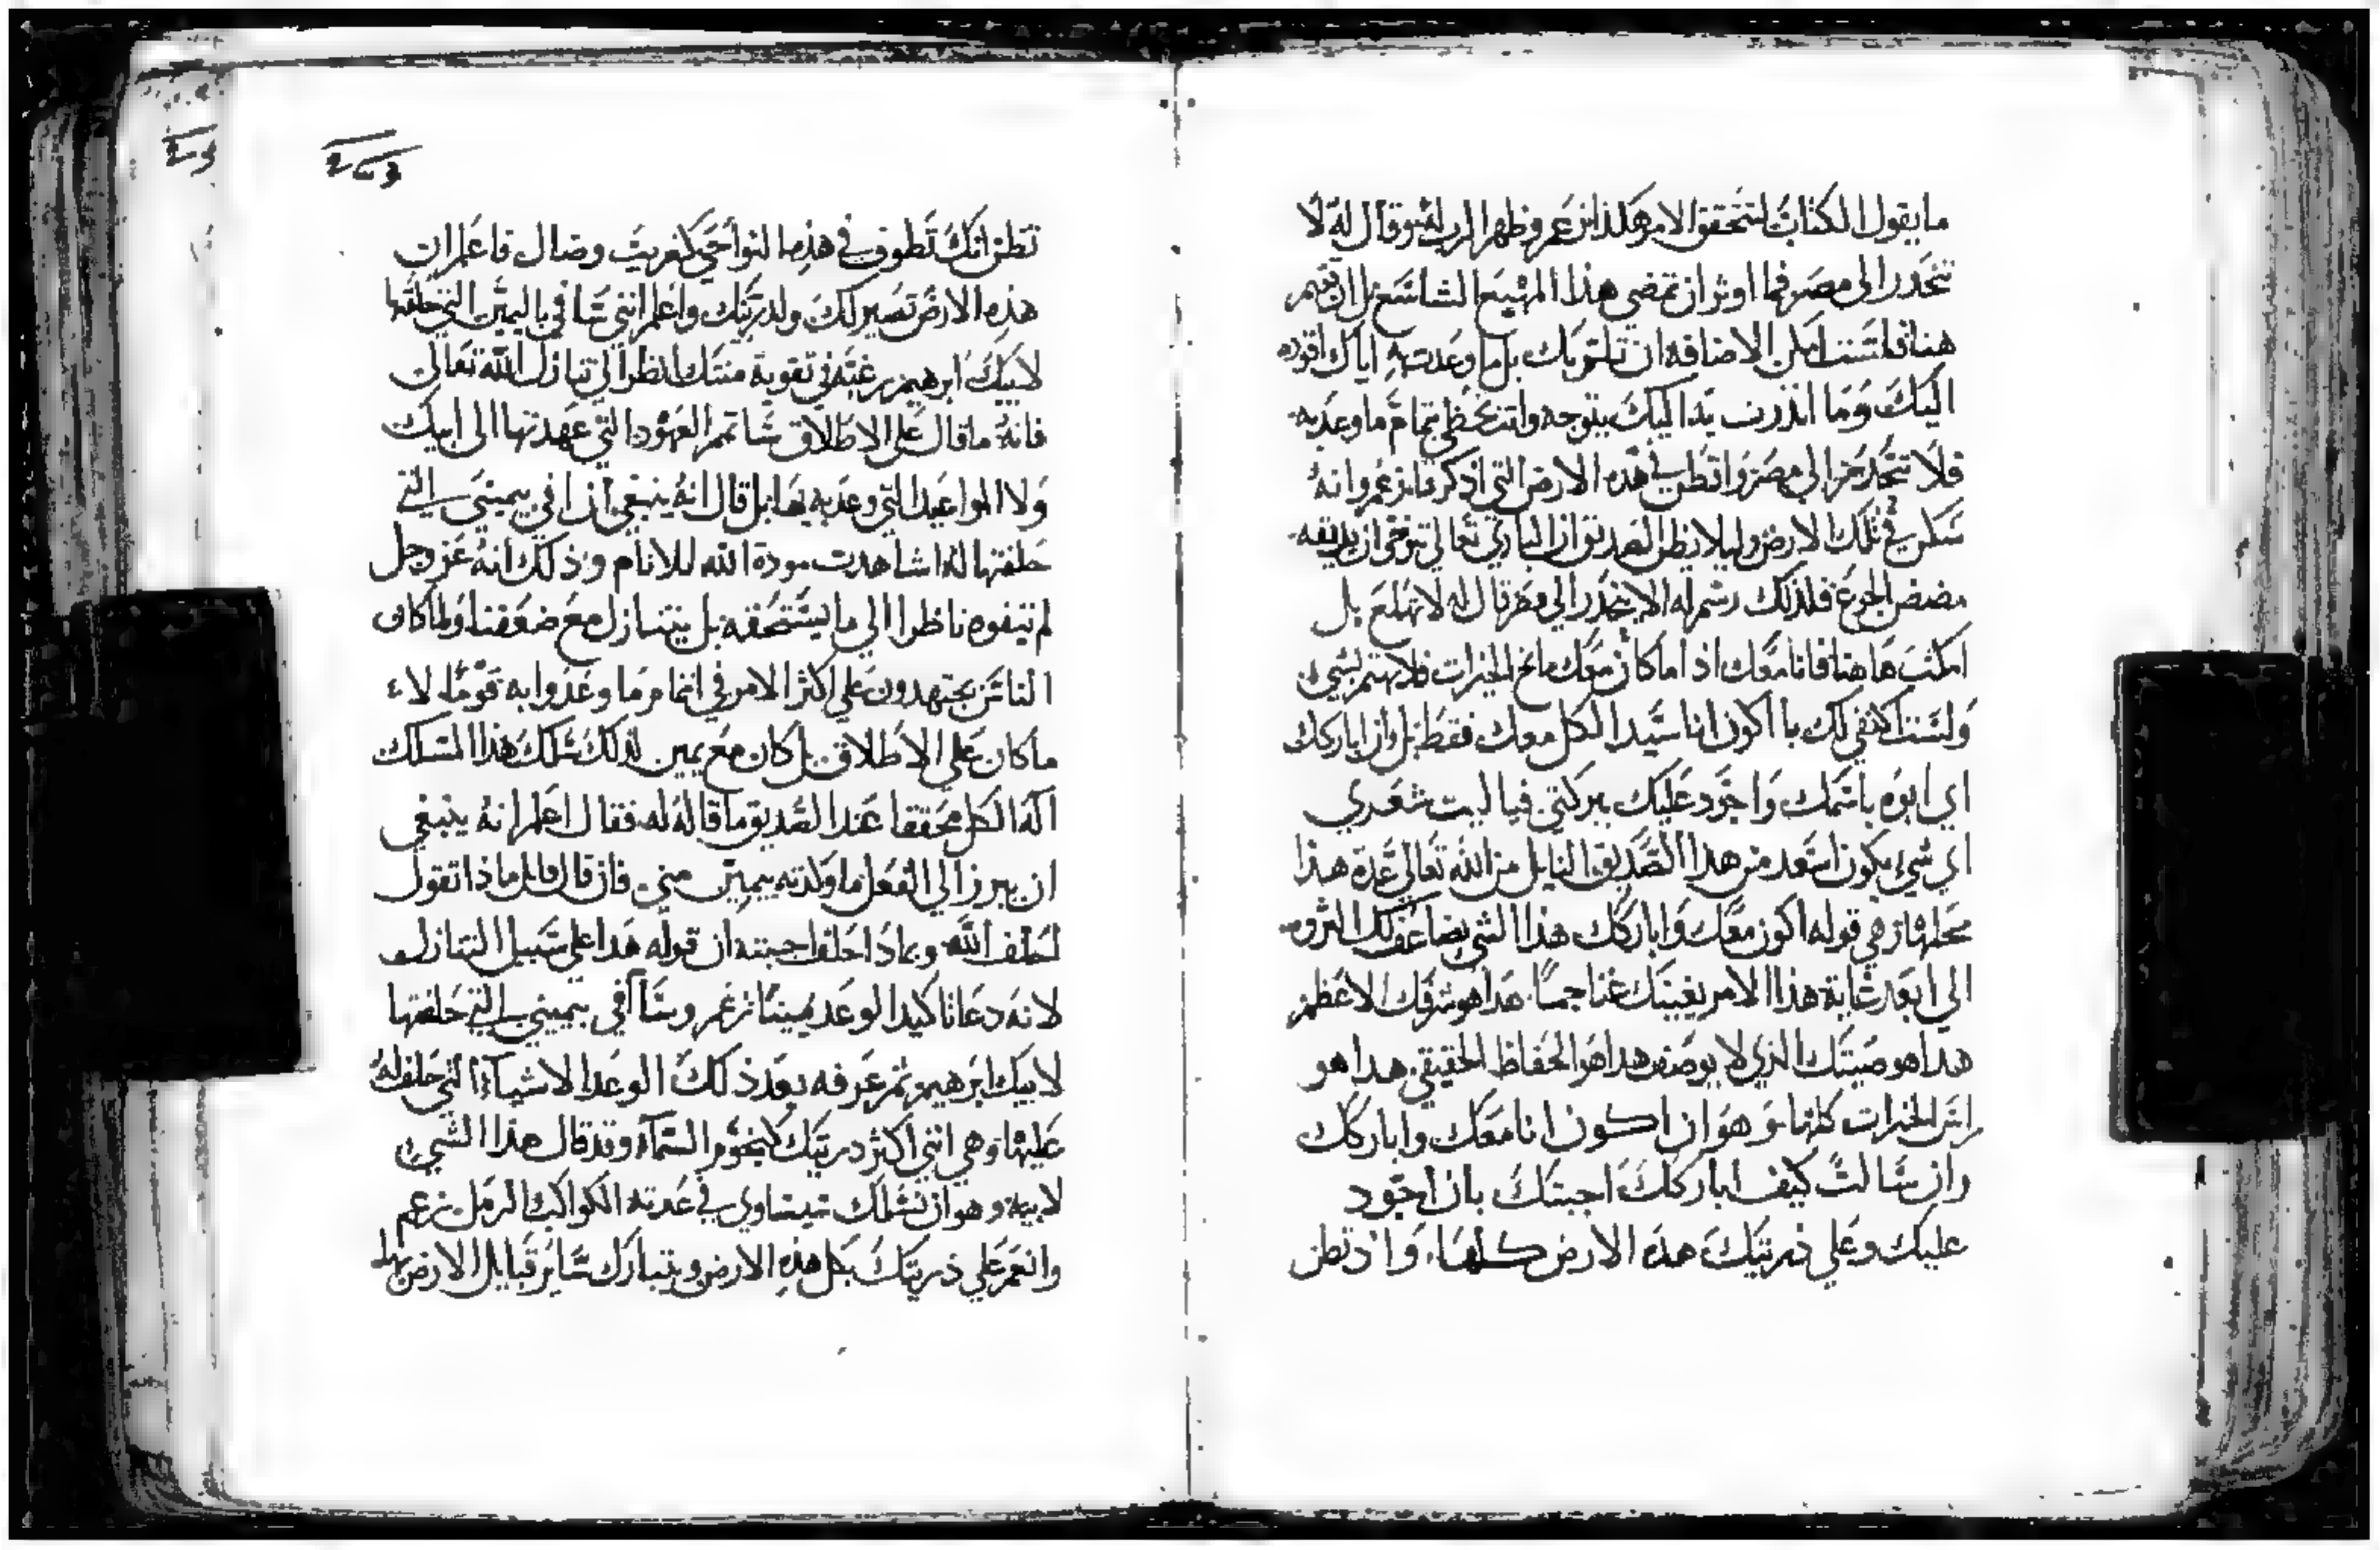 ما يقول الكتاب لتتحقق الامر هكذا زعم وظهر الرب له وقال له لا
تنحدر الى مصر فما اوثر ان تمضي هذا المهيع الشاسع بل ان تقيم
هنا فلست اهمل الاضافه ان بل ما وعدت به اباك اقوده
اليك وما انذرت به اليك يتوجه وانت تحظى بتمام ما وعد به
فلا تنحدرن الى مصر واقطن في هذه الارض التي اذكرها زعم وانه
سكن في تلك الارض وليلا يظن الصديق ان الباري تعالى توخى ان يذيقه
مضض الجوع فلذلك رسم له الا ينحدر الى مصر قال له لا تهلع بل
امكث هاهنا فانا معك اذا ما كان معك مانح الخيرات فلا تهتم بشي
ولست اكتفي لك با اكون انا سيد الكل معك فقط بل وان اباركك
اي انوه باسمك واجود عليك ببركتي فيا ليت شعري
اي شي يكون اسعد من هذا الصديق النايل من الله تعالى عدة هذا
محلها زهي قوله اكون معك واباركك هذا الشي يضاعف لك الثروه
الى ابعد غاية هذا الامر يغنيك غنا جما هذا هو شرفك الاعظم
هذا هو صيتك الذي لا يوصف هذا هو الحفاظ الحقيقي هذا هو
راس الخيرات كلها وهو ان اكون انا معك واباركك
وان سالت كيف اباركك اجبتك بان اجود
عليك وعلى ذريتك هذه الارض كلها، واذ تظن
203
تظن انك تطوف في هذه النواحي كغريب وضال فاعلم ان
هذه الارض تصير لك ولذريتك واعلم انني سافي باليمين التي حلفتها
لابيك ابرهيم رغبه في تقوية منتك انظر الى تنازل الله تعالى
فانه ما قال على الاطلاق ساتمم العهود التي عهدتها الى ابيك
ولا المواعيد التي وعد به بها بل قال انه ينبغي ان افي بيميني التي
حلفتها له اشاهدت مودة الله للانام وذلك انه عز وجل
لم يتفوه ناظرا الى ما يستحقه بل يتنازل مع ضعفنا ولما كان
الناس يجتهدون على اكثر الامر في اتمام ما وعدوا به قوما لاء
ما كان على الاطلاق بل كان مع يمين لذلك سلك هذا المسلك
اله الكل محققا عند الصديق ما قاله له فقال اعلم انه ينبغي
ان يبرز الى الفعل ما وكدته بيمين مني فان قال قائل ماذا تقول
احلف الله وبماذا حلف اجبته ان قوله هذا على سبيل التنازل
لانه دعا تاكيد الوعد يمينا زعم وسأفي بيميني التي حلفتها
لابيك ابرهيم ثم عرفه بعد ذلك الوعد الاشياء التي حلف له
عليها وهي انني اكثر ذريتك كنجوم السماء وقد قال هذا الشي
لابيه وهو ان نسلك سيساوي في عدته الكواكب الرمل زعم
وانعم على ذريتك بكل هذه الارض ويتبارك ساير قبايل الارض بها